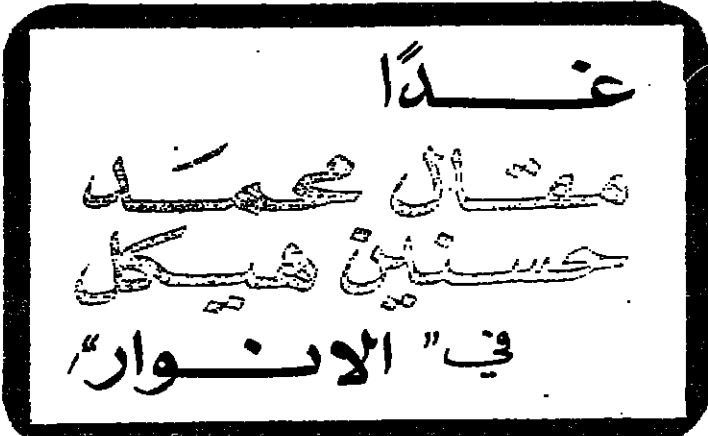 غـــدًا
مقـال محمـد
حسنين هيكل
في "الانـوار"